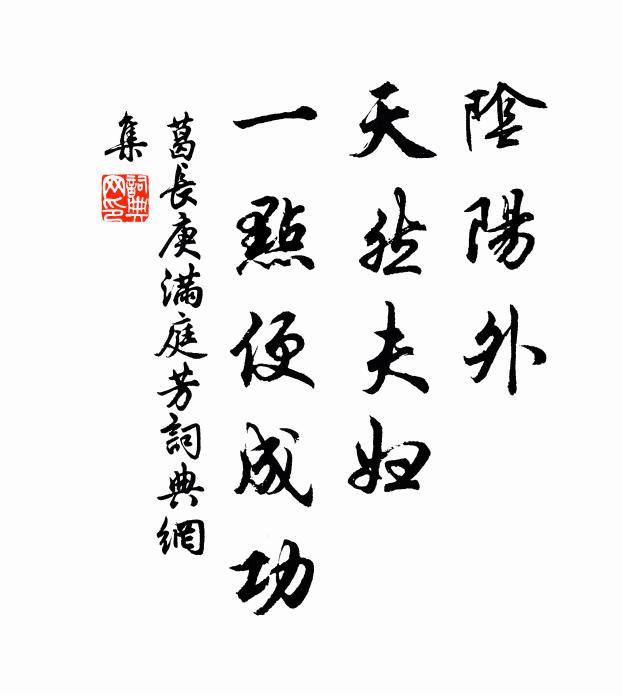 陰陽外
天然夫婦
一點便成功
葛長庚滿庭芳詞典網
集
詞典
网印